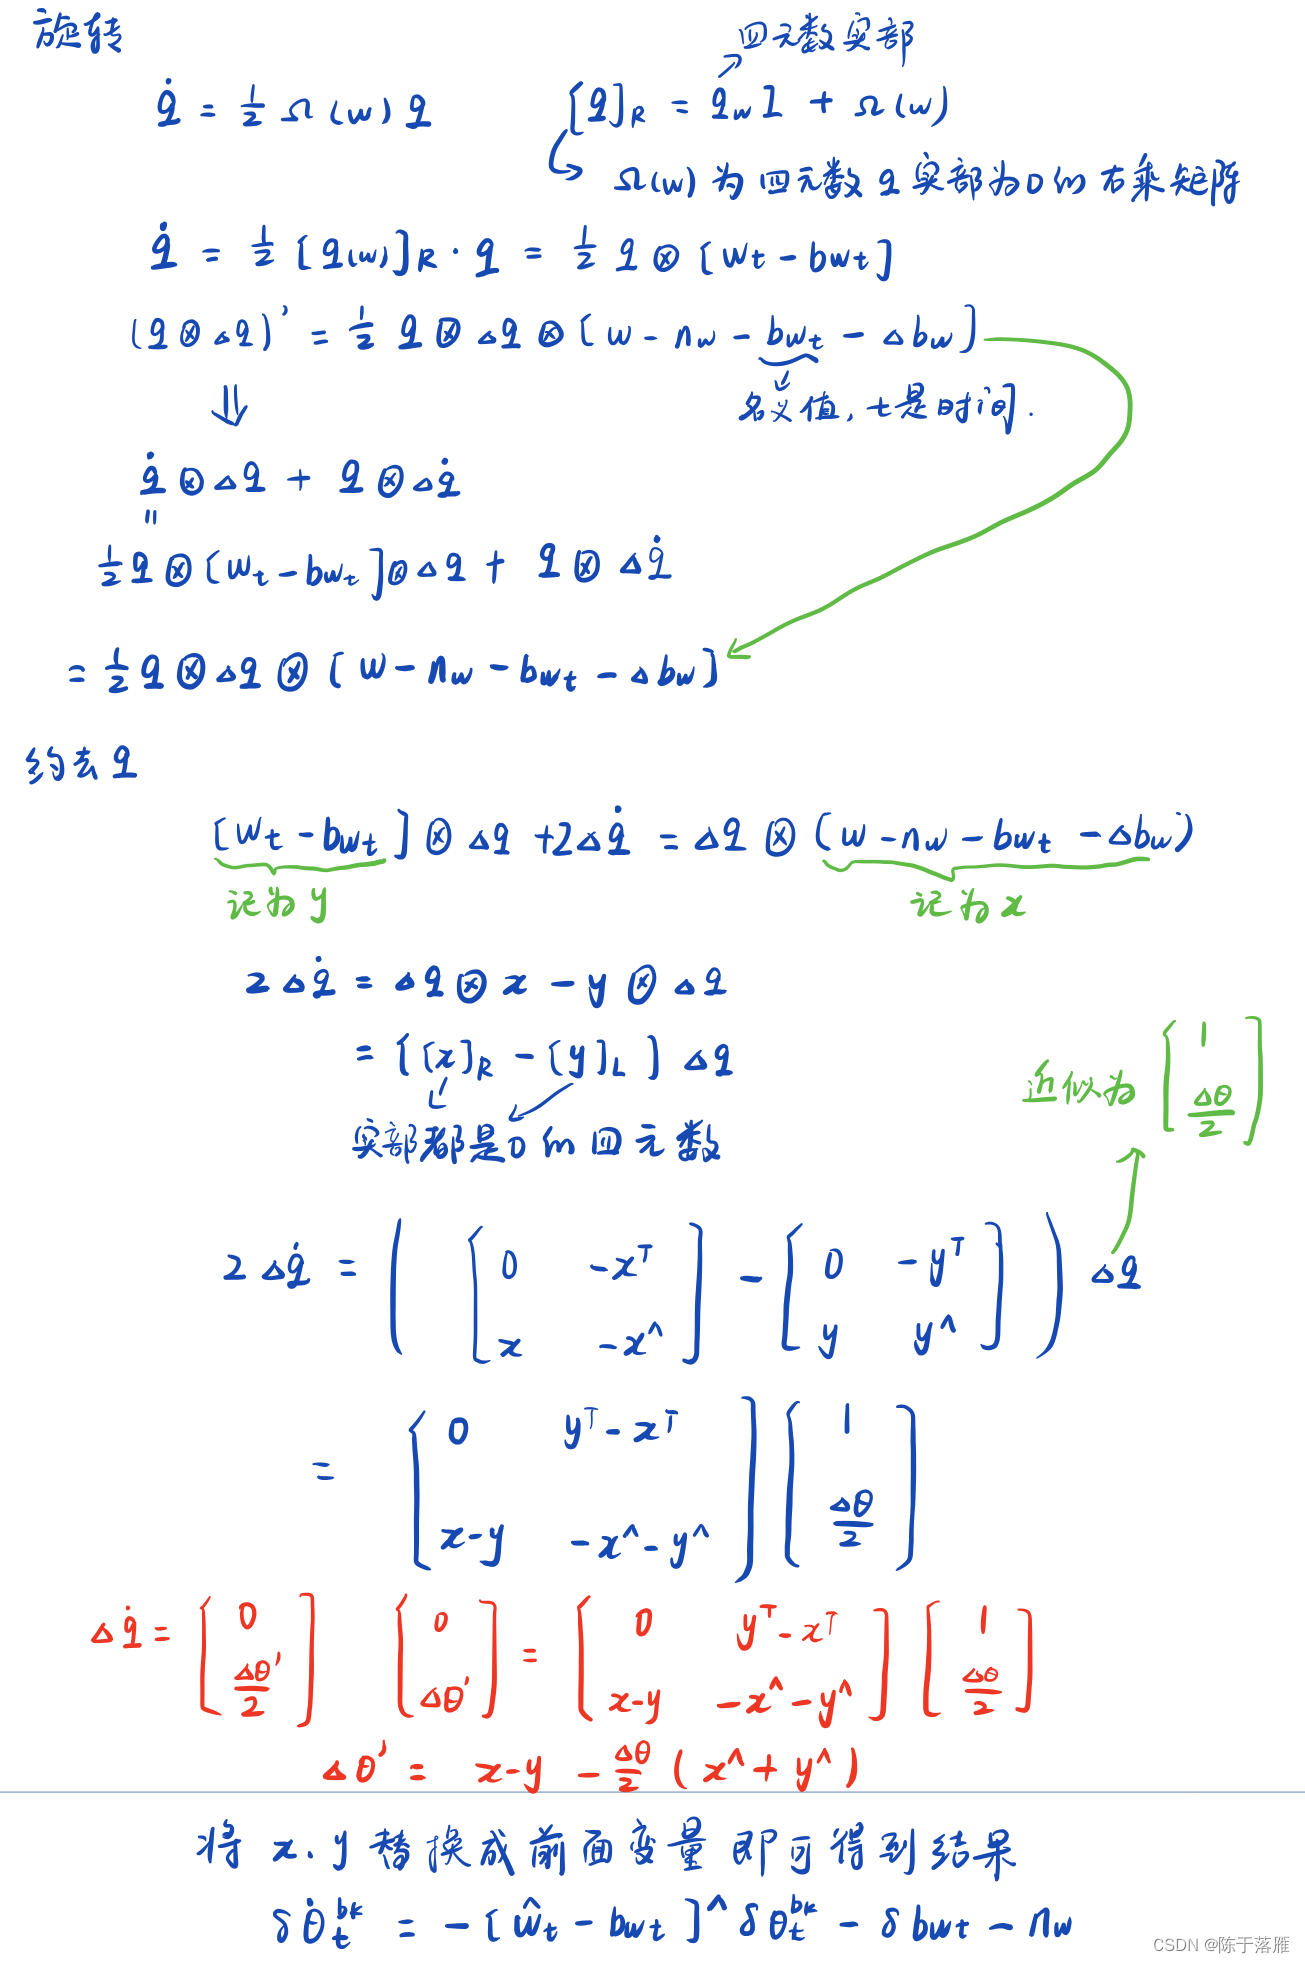 旋转
四元数实部
q̇ = 1/2 Ω(w) q    [q]_R = q_w I + Ω(w)
Ω(w) 为四元数 q 实部为0的右乘矩阵
q̇ = 1/2 [q(w)]_R · q = 1/2 q ⊗ [w_t - b_wt]
(q ⊗ Δq)' = 1/2 q ⊗ Δq ⊗ [w - n_w - b_wt - Δb_w]
⇓
名义值, t是时间.
q̇ ⊗ Δq + q ⊗ Δq̇
=
1/2 q ⊗ [w_t - b_wt] ⊗ Δq + q ⊗ Δq̇
= 1/2 q ⊗ Δq ⊗ [w - n_w - b_wt - Δb_w]
约去 q
[w_t - b_wt] ⊗ Δq + 2Δq̇ = Δq ⊗ (w - n_w - b_wt - Δb_w)
记为 y    记为 x
2Δq̇ = Δq ⊗ x - y ⊗ Δq
= [[x]_R - [y]_L] Δq
近似为 [1; Δθ/2]
实部都是0的四元数
2Δq̇ = ([0 -x^T; x -x^] - [0 -y^T; y y^]) Δq
= [0 y^T - x^T; x-y -x^ - y^] [1; Δθ/2]
Δq̇ = [0; Δθ'/2]    [0; Δθ'] = [0 y^T - x^T; x-y -x^ - y^] [1; Δθ/2]
Δθ' = x-y - Δθ/2 (x^ + y^)
将 x. y 替换成前面变量即可得到结果
δθ̇_t^bk = -[ŵ_t - b_wt]^ δθ_t^bk - δb_wt - n_w
CSDN @陈于落雁